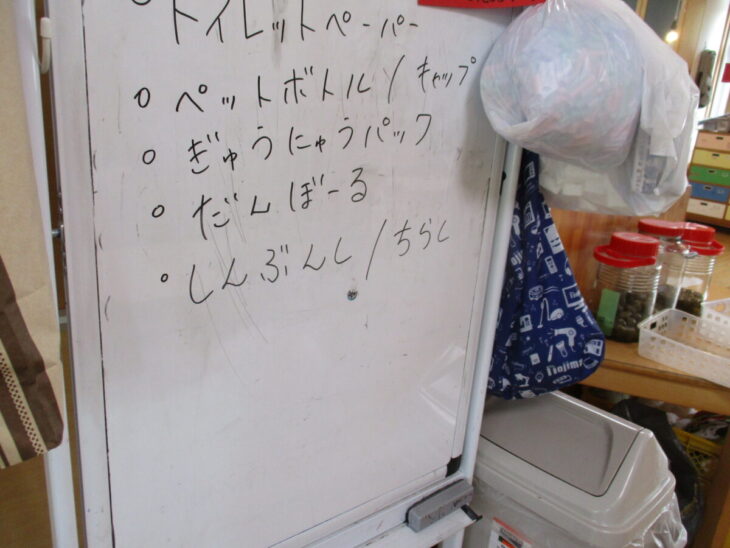 ○ トイレットペーパー
○ ペットボトル/キャップ
○ ぎゅうにゅうパック
○ だんぼーる
○ しんぶんし/ちらし
Nojima